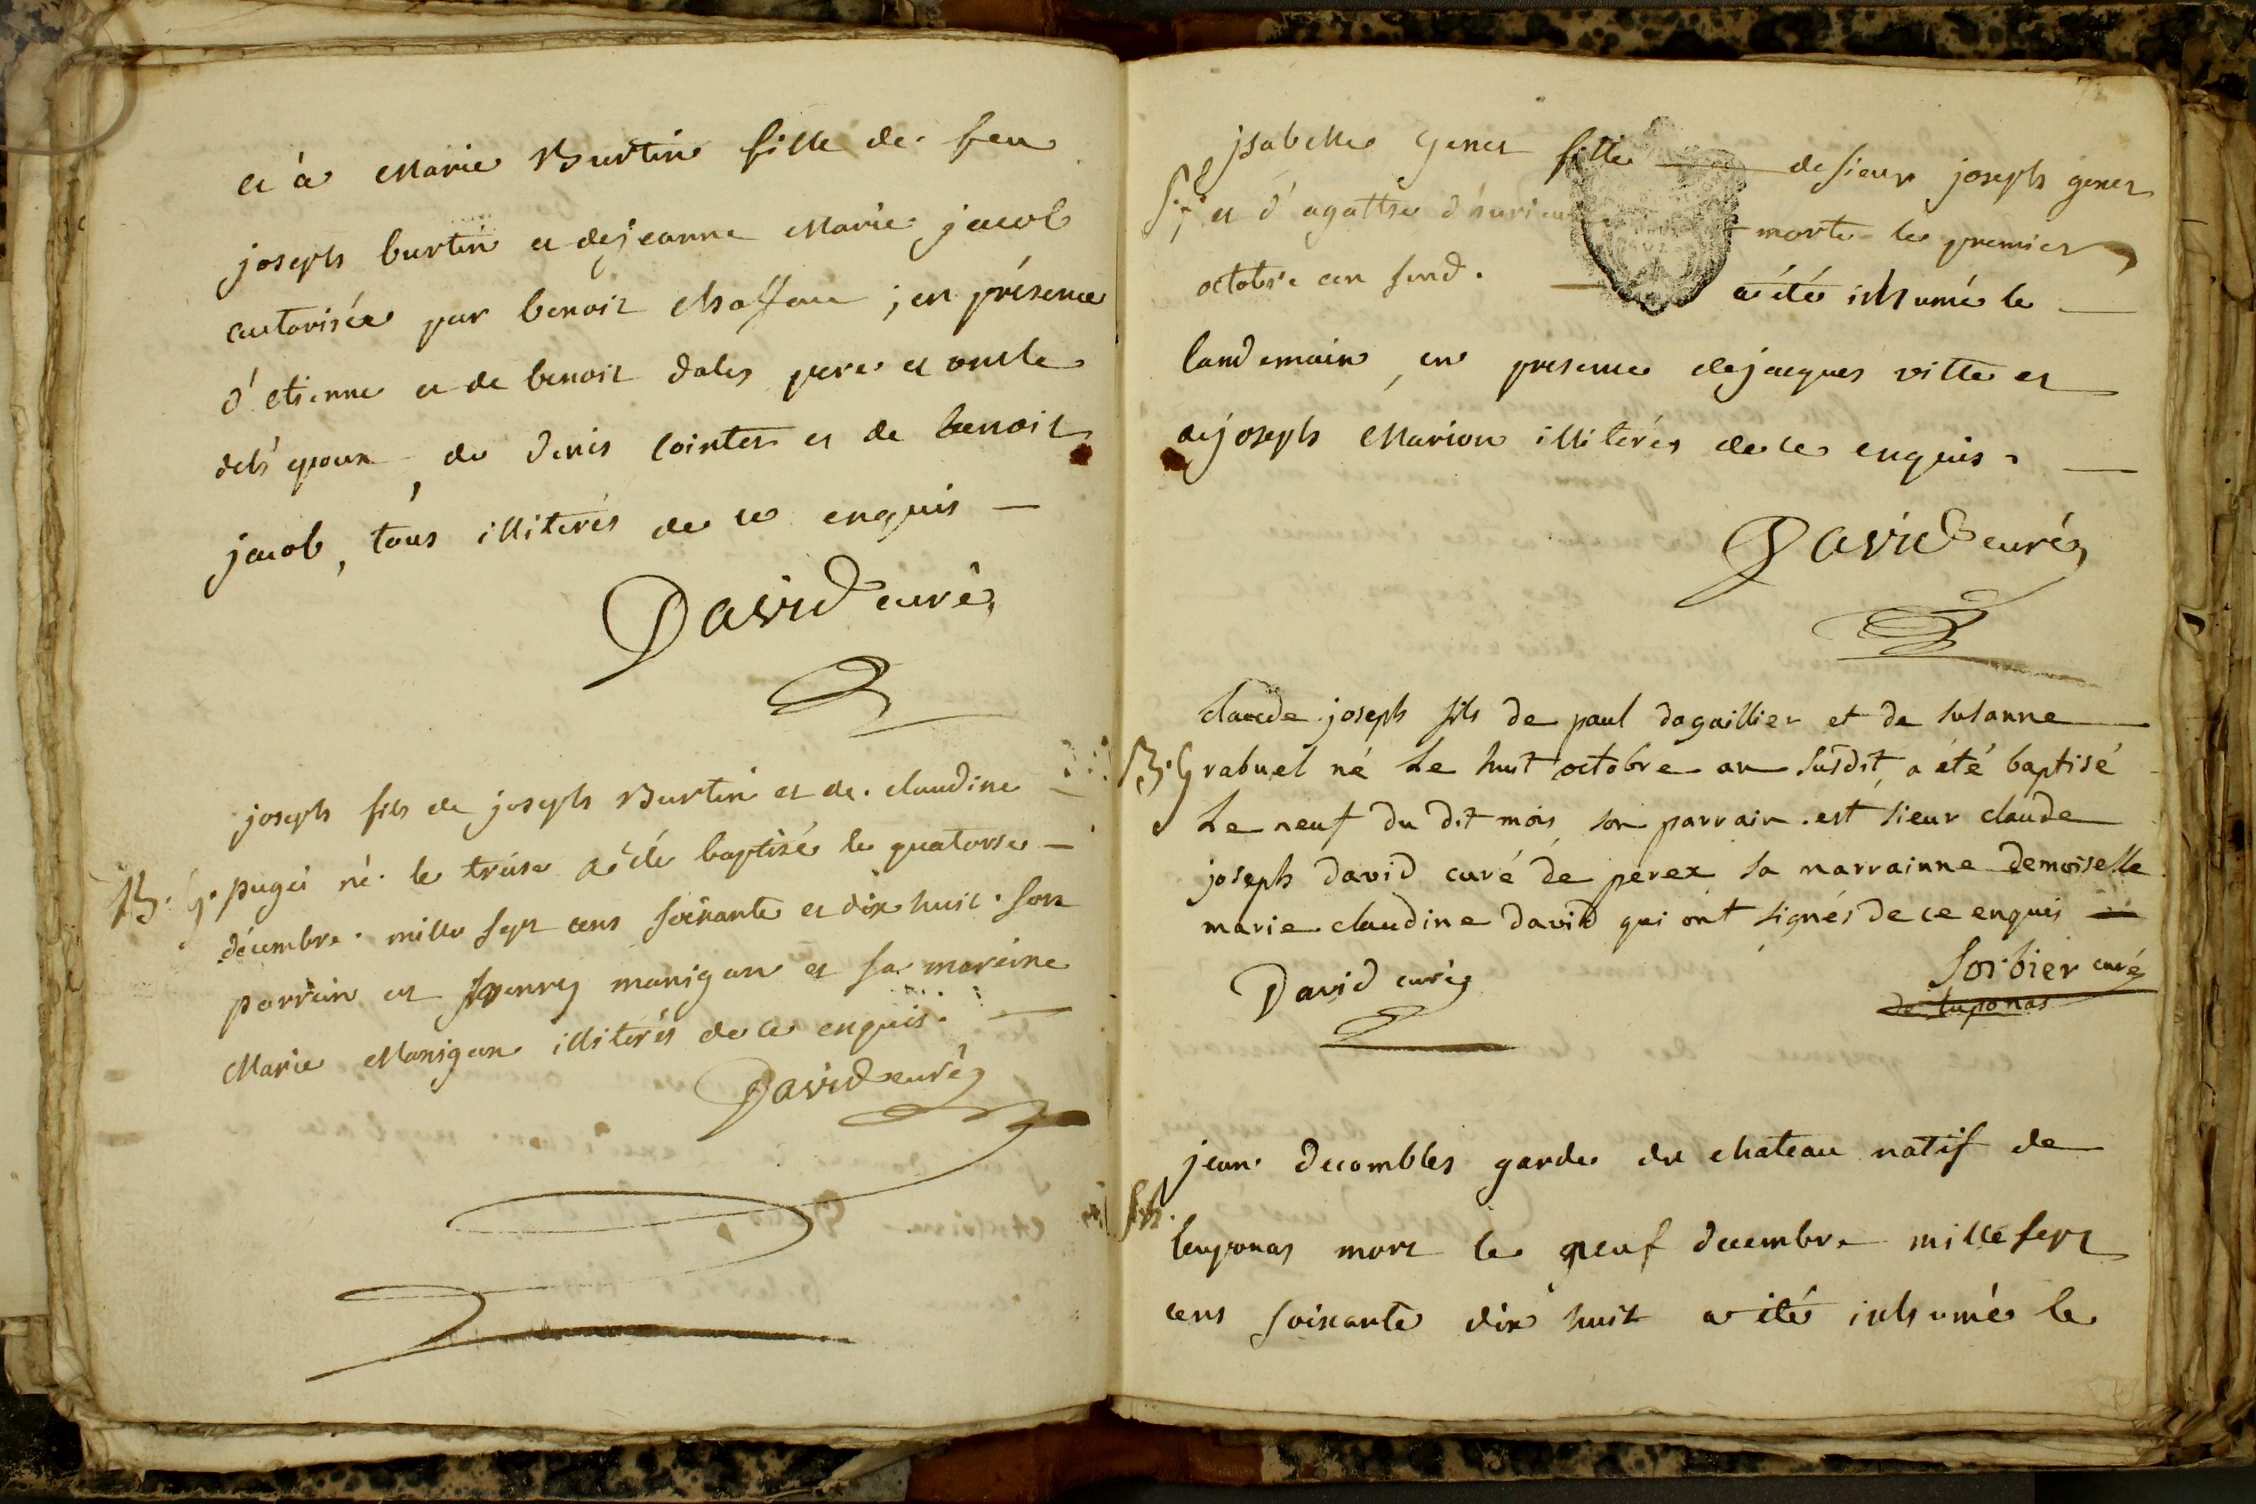 et à Marie Burtin fille de feu
joseph burtin et de jeanne Marie jacob
autorisée par benoit Chaffaur ; en présence
d'etienne et de benoit dales pere et oncle
dels' epoux, de denis Cointet et de benoit
jacob, tous illiterés de ce enquis —
David curé
joseph fils de joseph Burtin et de claudine
B. G. puget né le treise a été baptisé le quatorse —
décembre mille sept cens soixante et dix huit. son
parrain est henry manigan et sa mareine
Marie Manigan illiterés de ce enquis. —
David curé
jsabelle genet fille — de sieur joseph genet
S. f. et d'agathe morte le premier
octobre an susd. — a été inhumé le —
landemain, en presence de jacques vitte et
de joseph Marion illiterés de ce enquis. —
David curé
claude joseph fils de paul dagaillier et de susanne
B. G rabuel né Le huit octobre an susdit, a été baptisé
Le neuf du dit mois son parrain est sieur claude
joseph david curé de perex sa marrainne demoiselle
marie claudine david qui ont signés de ce enquis —
David curé
Sorbier curé
de luponas
jean decombles garde du chateau natif de
S. h.
luponas mort le neuf decembre mille sept
cens soixante dix huit a été inhumé le